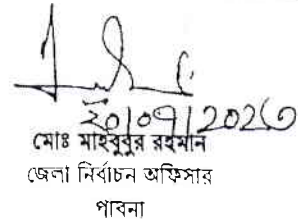 ২০|০৭|২০২৩
মোঃ মাহবুবুর রহমান
জেলা নির্বাচন অফিসার
পাবনা